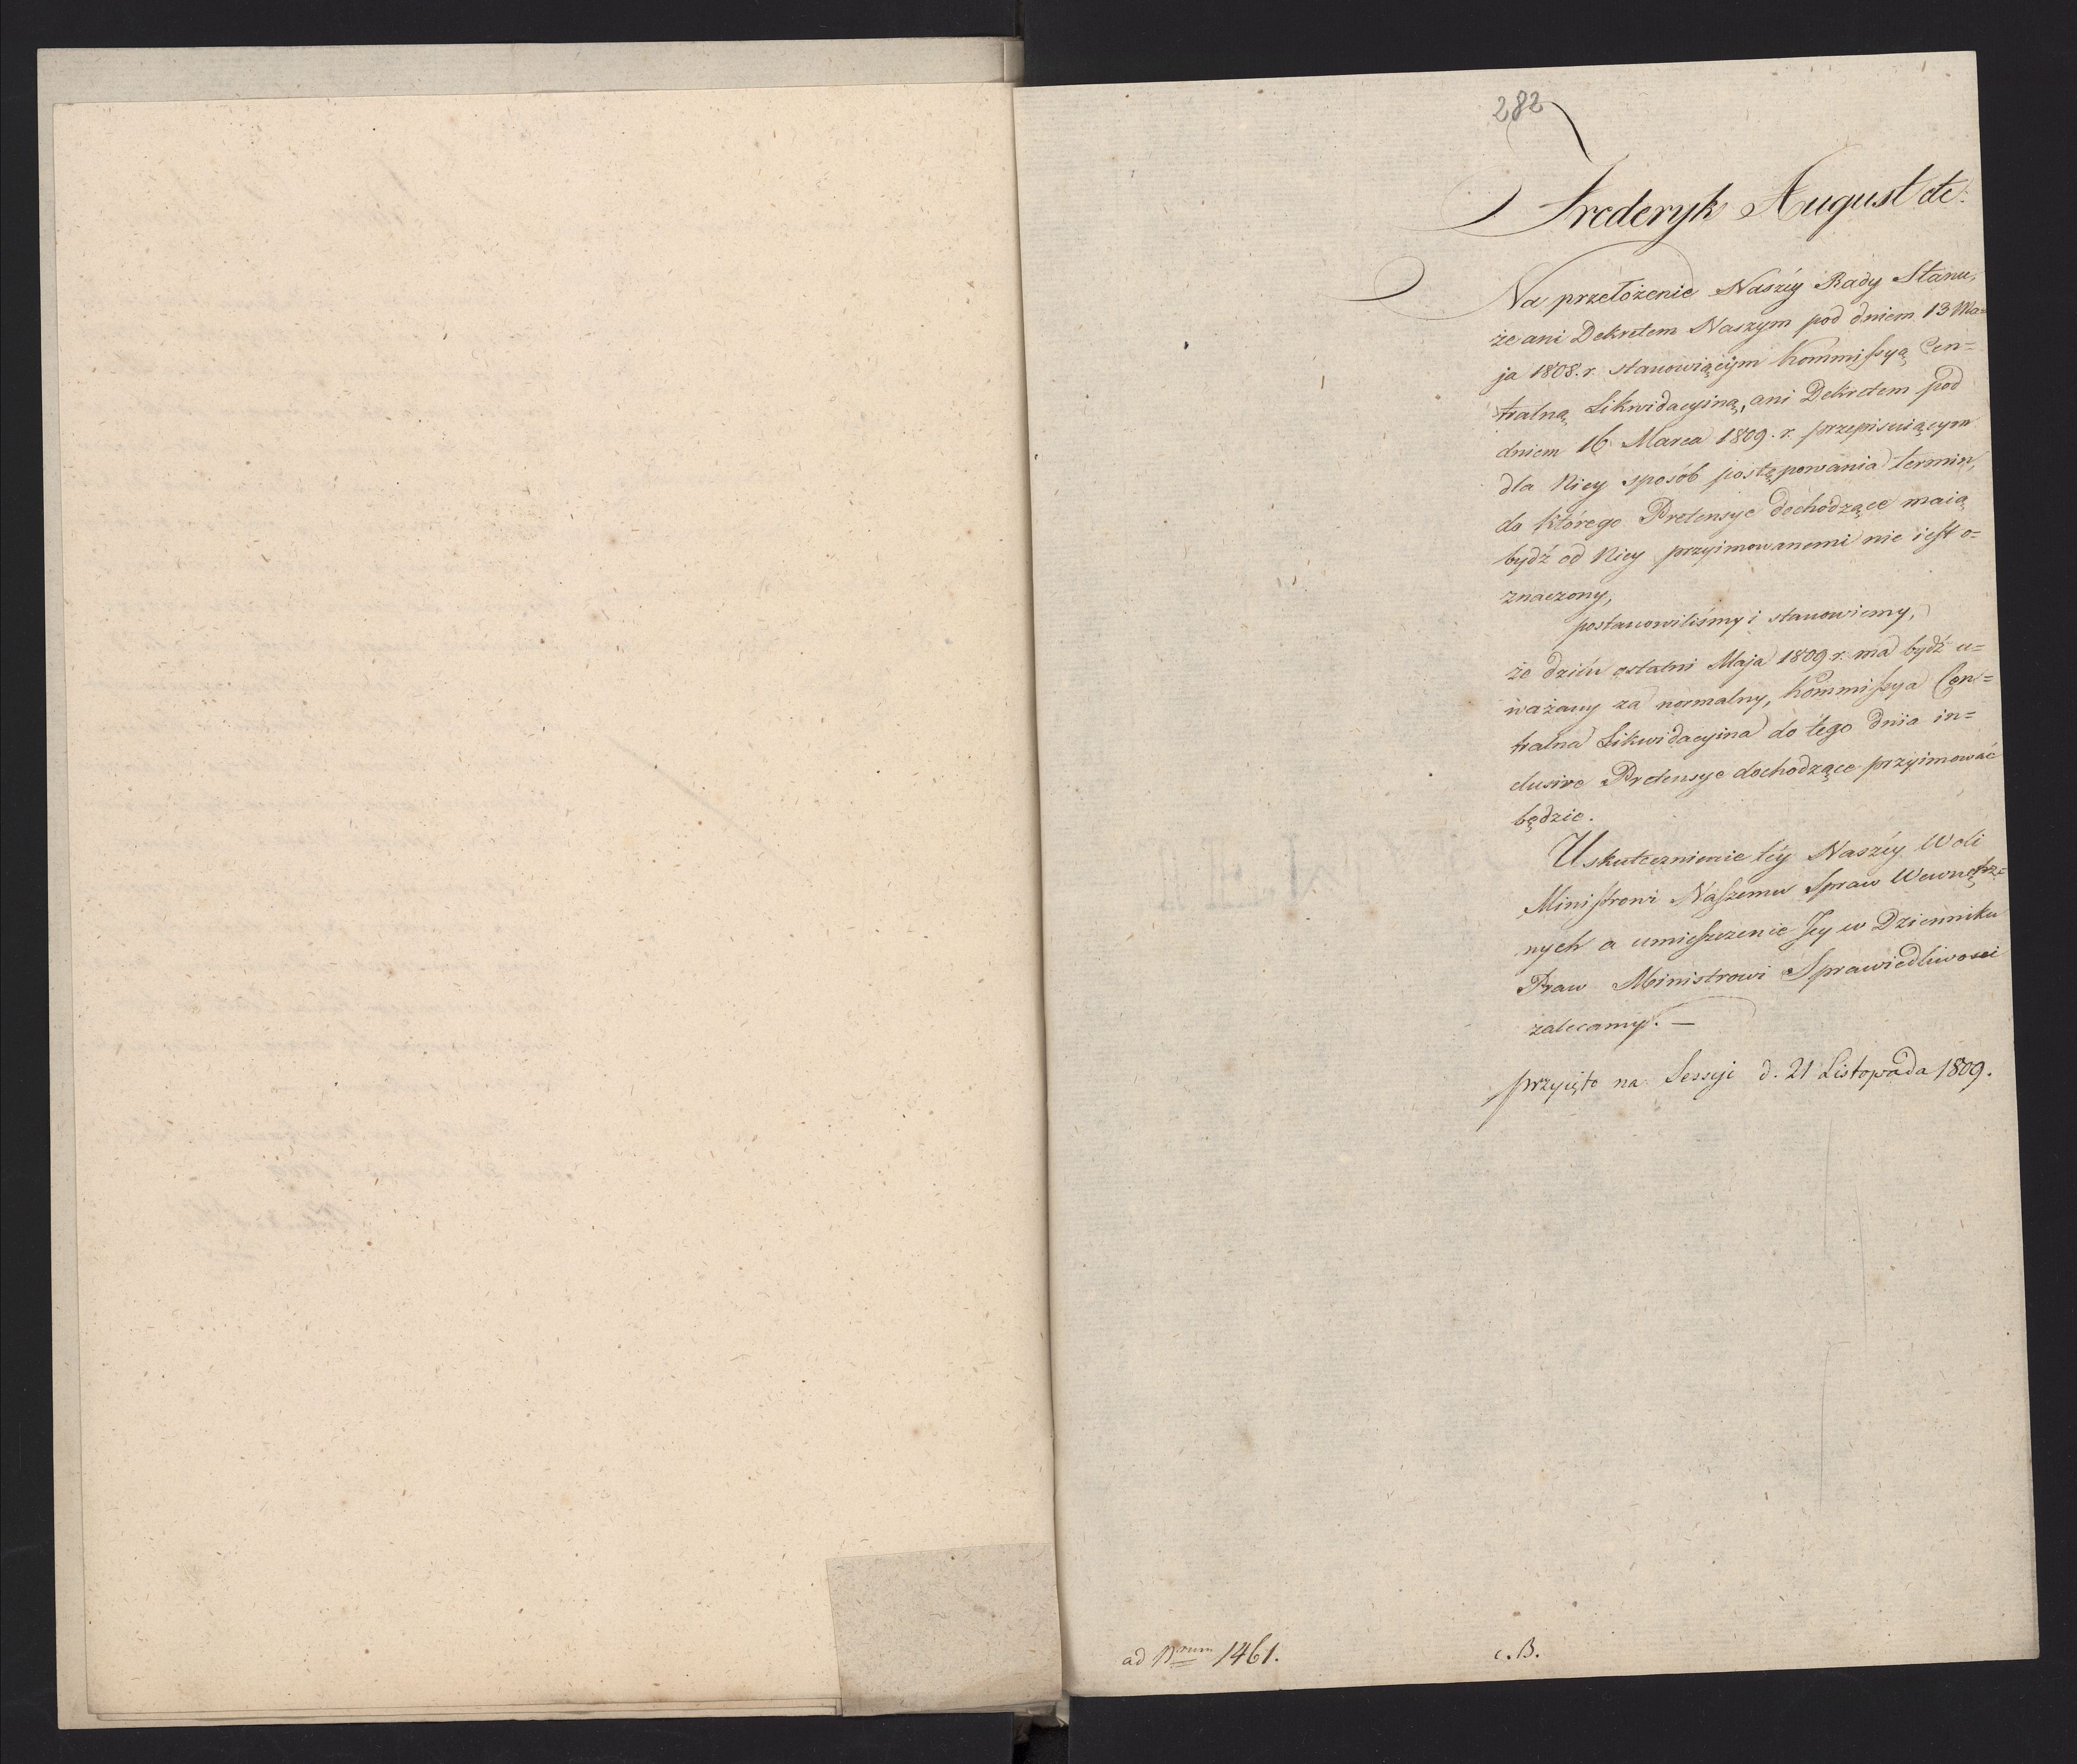 282
Frederyk August etc.
Na przełożenie Naszéy Rady Stanu,
że ani Dekretem Naszym pod dniem 13 Ma=
ja 1808. r. stanowiącym Kommissyą Cen=
tralną Likwidacyiną, ani Dekretem pod
dniem 16 Marca 1809. r. przepisuiącym
dla Niey sposób postępowania termin,
do którego Pretensye dochodzące maią
bydź od Niey przyimowanemi nie iest o=
znaczony,
postanowiliśmy i stanowiemy,
że dzień ostatni Maja 1809 r. ma bydź u=
ważany za normalny, Kommissya Cen=
tralna Likwidacyina do tego dnia in=
clusive Pretensye dochodzące przyimować
będzie.
Uskutecznienie téy Naszéy Woli
Ministrowi Naszemu Spraw Wewnętrz=
nych a umieszczenie Jey w Dzienniku
Praw Ministrowi Sprawiedliwosci
zalecamy. —
przyięto na Sessyi d. 21 Listopada 1809.
ad Nrum 1461.
c. B.